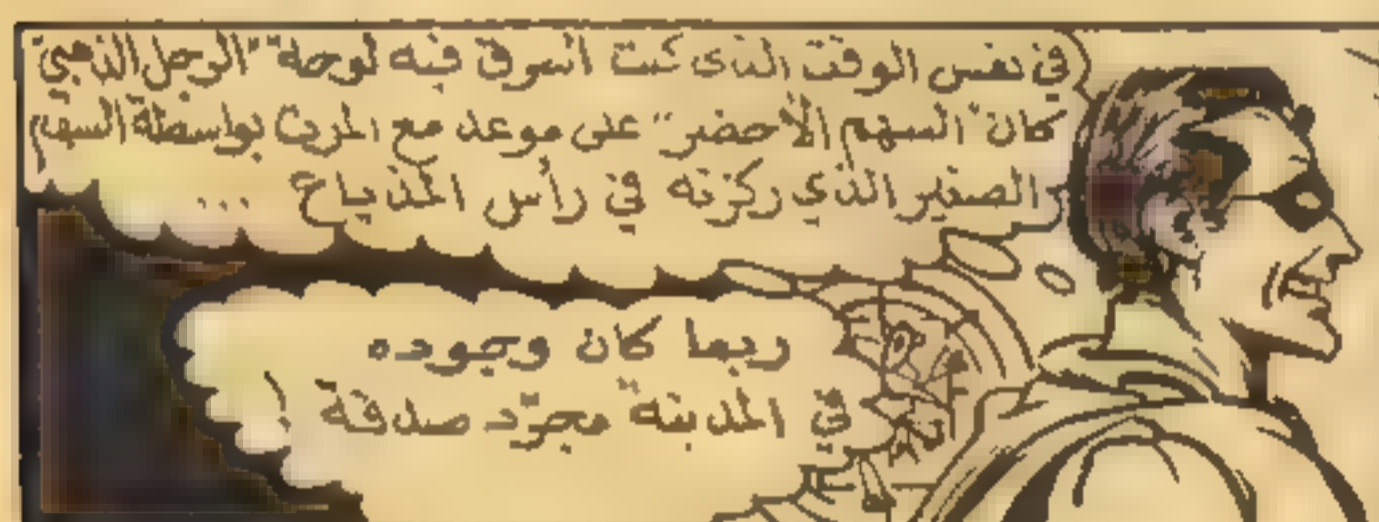 في نفس الوقت الذي كنت أسرق فيه لوحة "الرجل الذهبيّ"
كان "السهم الأخضر" على موعد مع المرت بواسطة السهم
الصغير الذي ركزته في رأس المذياع ...
ربما كان وجوده
في المدينة مجرّد صدفة !